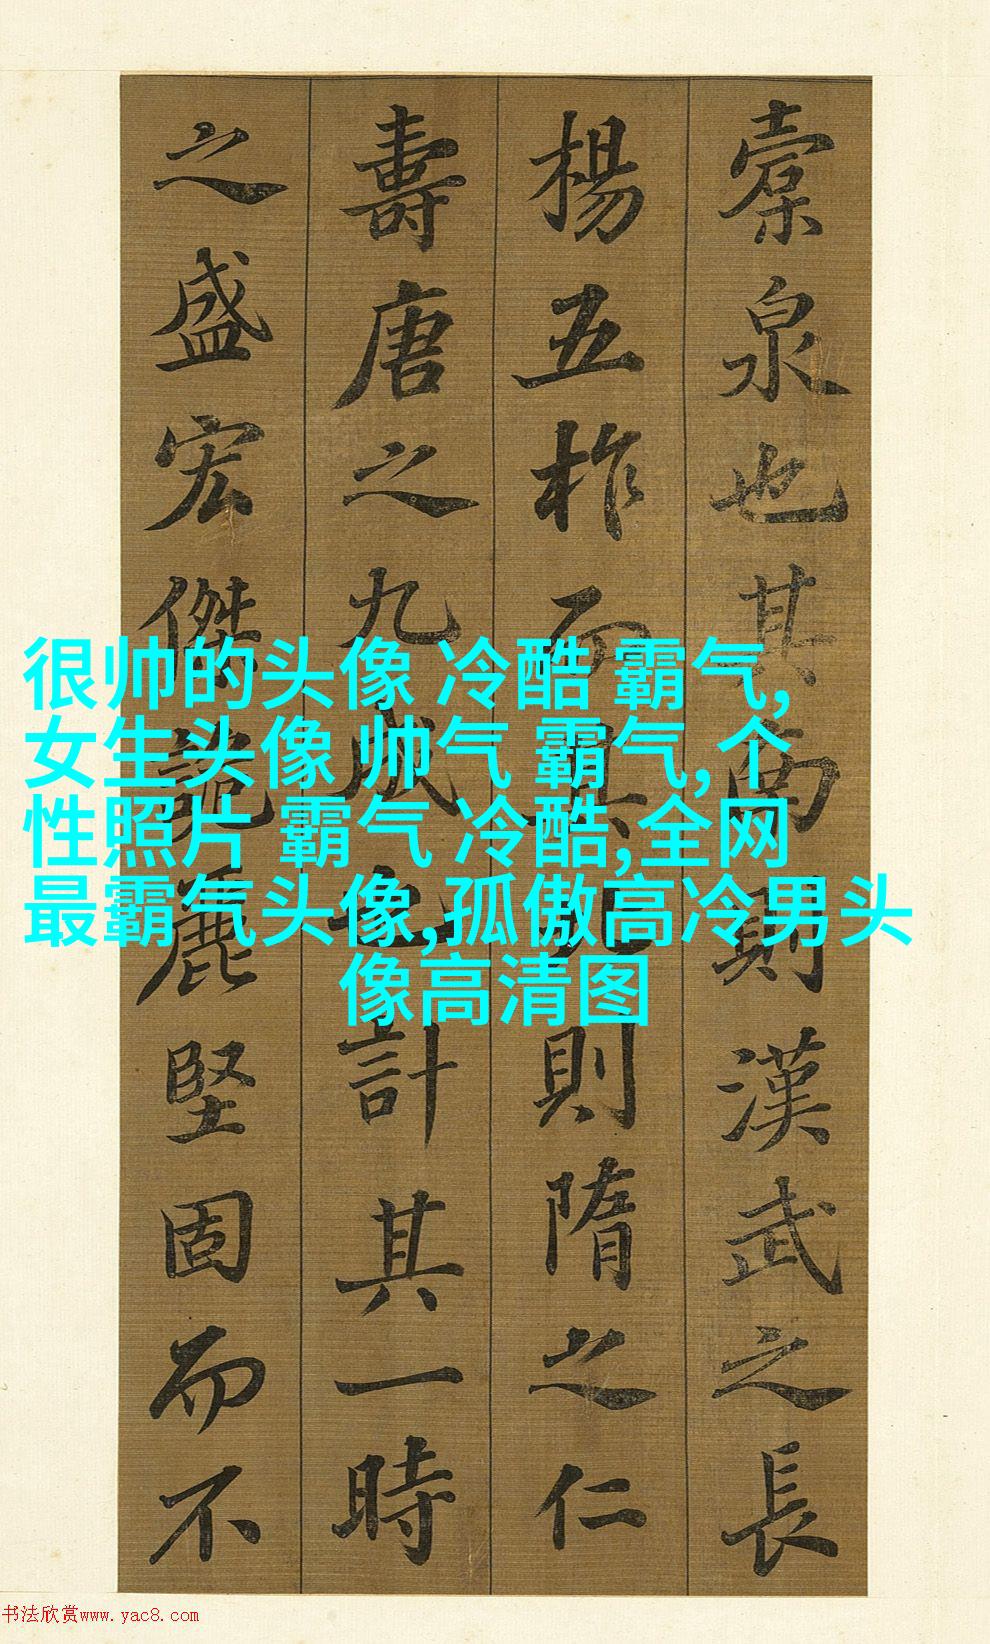 橐泉也其南則漢武之長
楊五柞而其則隋之仁
壽唐之九成也計其一時
之盛宏傑詭麗堅固而不
很帅的头像 冷酷 霸气,
女生头像 帅气 霸气,个
性照片 霸气 冷酷,全网
最霸气头像,孤傲高冷男头
像高清图
书法欣赏www.yac8.com